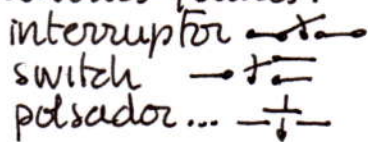 interruptor
switch
polsador...